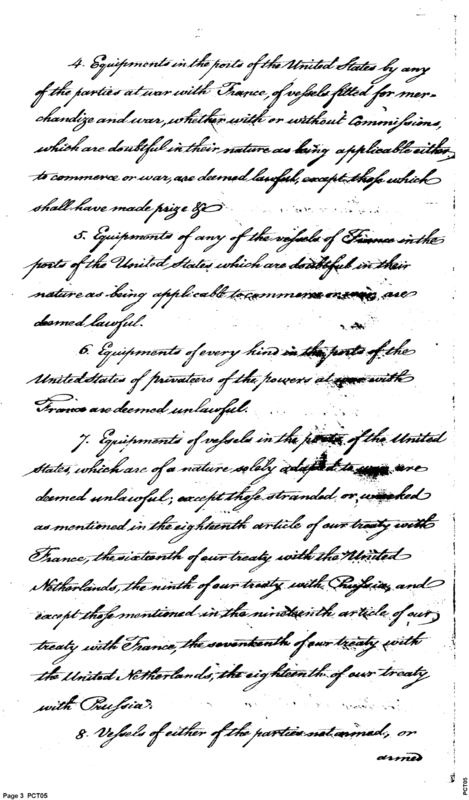 4. Equipments in the ports of the United States by any
of the parties at war with France, of vessels fitted for mer-
chandize and war, whether with or without Commissions,
which are doubtful in their nature as being applicable either
to commerce or war, are deemed lawful, except those which
shall have made prize &c
5. Equipments of any of the vessels of France in the
ports of the United States, which are doubtful in their
nature as being applicable to commerce or war, are
deemed lawful.
6. Equipments of every kind in the ports of the
United States of privateers of the powers at war with
France are deemed unlawful.
7. Equipments of vessels in the ports of the United
States, which are of a nature solely adapted to war, are
deemed unlawful; except those stranded or wrecked
as mentioned in the eighteenth article of our treaty with
France, the sixteenth of our treaty with the United
Netherlands, the ninth of our treaty with Prussia, and
except those mentioned in the nineteenth article of our
treaty with France, the seventeenth of our treaty with
the United Netherlands, the eighteenth of our treaty
with Prussia.
8. Vessels of either of the parties not armed, or
armed
Page 3 PCT05
PCT05